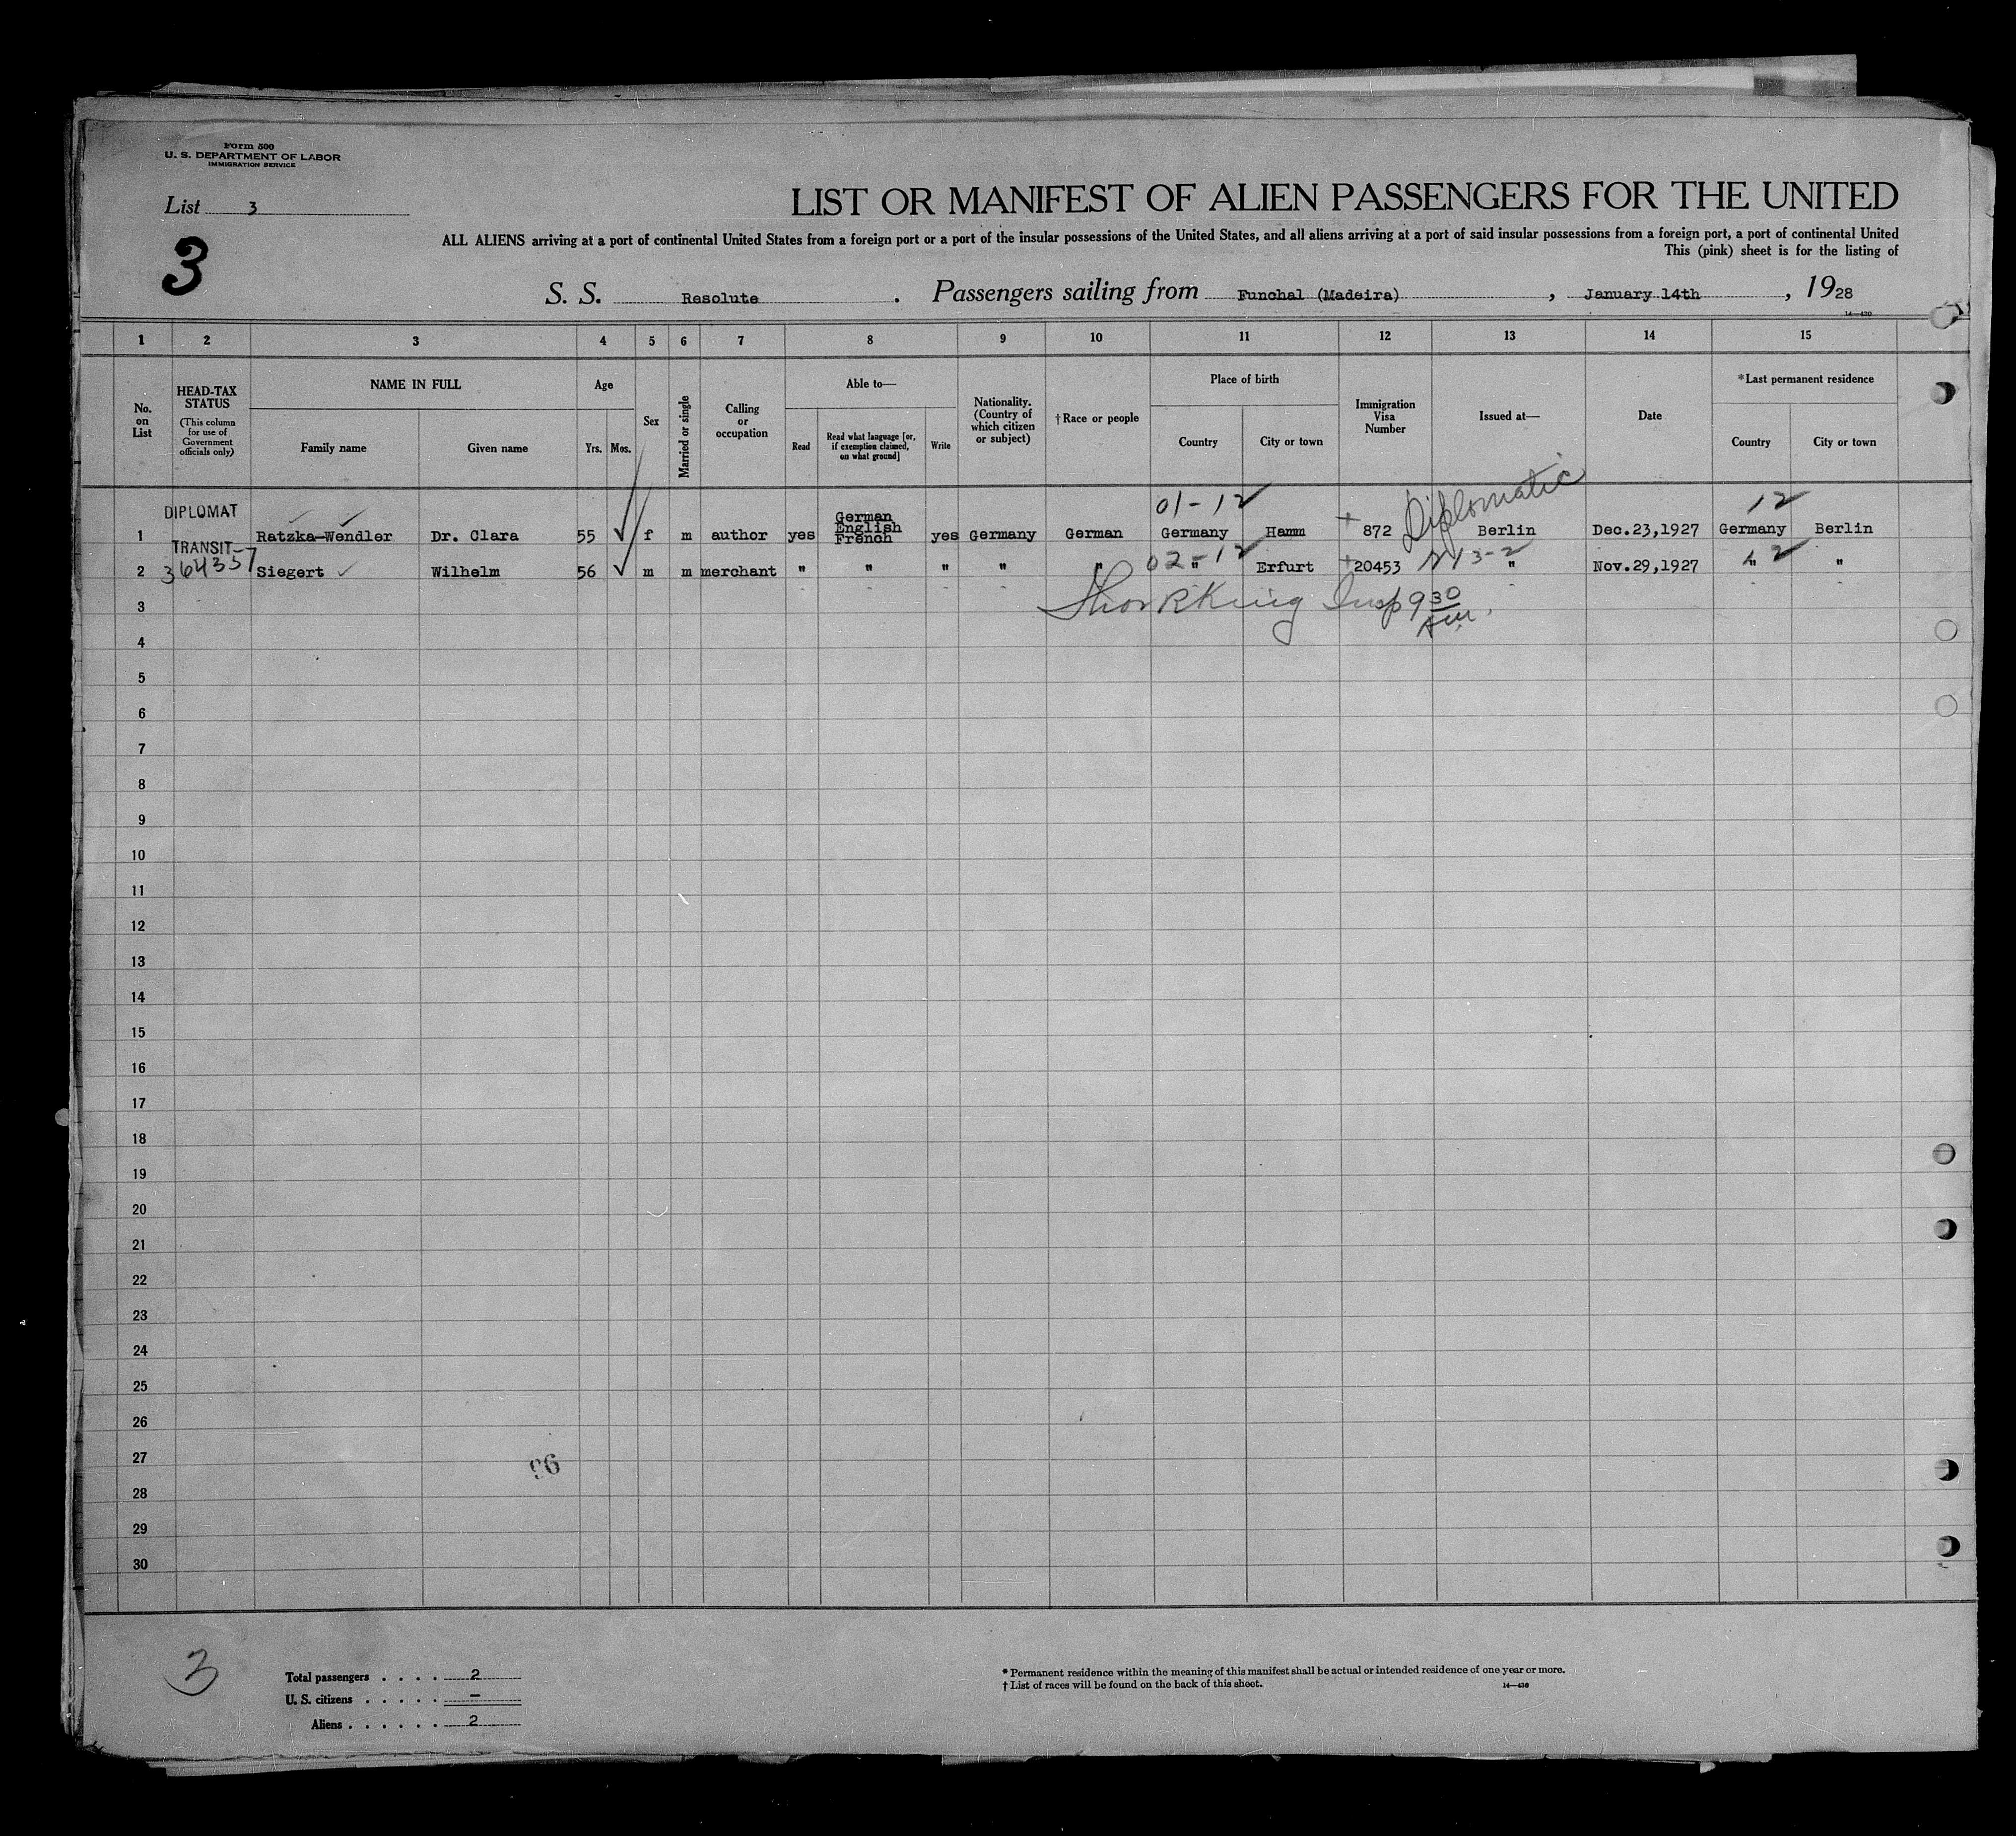 Form 500
U. S. DEPARTMENT OF LABOR
IMMIGRATION SERVICE
List 3
3
LIST OR MANIFEST OF ALIEN PASSENGERS FOR THE UNITED
ALL ALIENS arriving at a port of continental United States from a foreign port or a port of the insular possessions of the United States, and all aliens arriving at a port of said insular possessions from a foreign port, a port of continental United
This (pink) sheet is for the listing of
S. S. Resolute . Passengers sailing from Funchal (Madeira) , January 14th , 1928
14—430
1 2 3 4 5 6 7 8 9 10 11 12 13 14 15
No. on List
HEAD-TAX STATUS
(This column for use of Government officials only)
NAME IN FULL
Family name Given name
Age
Yrs. Mos.
Sex
Married or single
Calling or occupation
Able to—
Read
Read what language [or, if exemption claimed, on what ground]
Write
Nationality. (Country of which citizen or subject)
†Race or people
Place of birth
Country City or town
Immigration Visa Number
Issued at—
Date
*Last permanent residence
Country City or town
01-12 Diplomatic 12
DIPLOMAT
1 Ratzka-Wendler Dr. Clara 55 f m author yes German English French yes Germany German Germany Hamm 872 Berlin Dec.23,1927 Germany Berlin
TRANSIT-
364357
02-12
2 Siegert Wilhelm 56 m m merchant " " " " " " Erfurt 20453 " Nov.29,1927 " "
3 King Insp 9 30 AM.
4
5
6
7
8
9
10
11
12
13
14
15
16
17
18
19
20
21
22
23
24
25
26
27
96
28
29
30
3
Total passengers . . . . 2
U. S. citizens . . . . . —
Aliens . . . . . . 2
* Permanent residence within the meaning of this manifest shall be actual or intended residence of one year or more.
† List of races will be found on the back of this sheet.
14—430